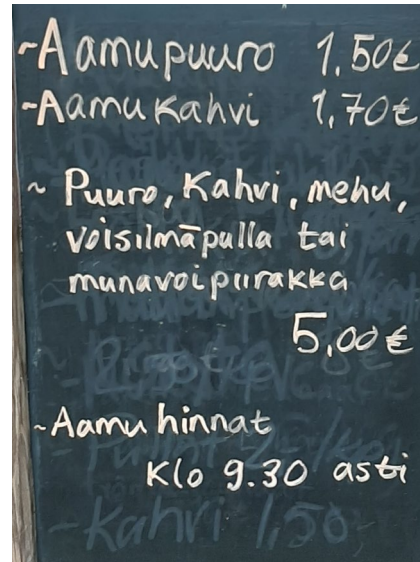 ~Aamupuuro 1,50€
~Aamukahvi 1,70€
~ Puuro, Kahvi, mehu,
voisilmäpulla tai
munavoipiirakka
5,00€
~Aamu hinnat
Klo 9.30 asti
-Kahvi 1,50